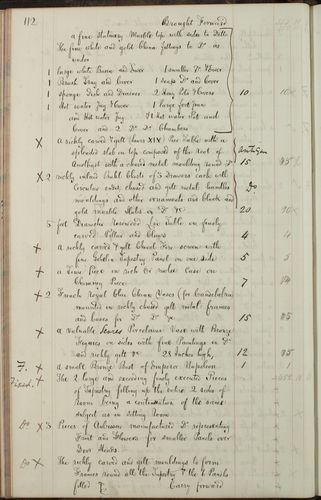 112 Brought Forward
a fine Statuary Marble top with sides to Ditto
The fine white and gold China fittings to Do as
under
1 large white Basin and Ewer 1 smaller Do Ewer
1 Brush Tray and Cover 1 Soap Do and Cover
1 Sponge dish and Drainer 2 10 10
1 Hot water Jug & Cover 1 large foot pan
and Hot water Jug 1 Hot water and
Cover and 2 Do Do Chambers
X A richly carved & gilt (Louis XIV) Pier Table with a
splendid slab on top composed of the root of
Amethyst with a chased metal moulding round Do 15
X 2 richly inlaid Buhl Chests of 3 drawers each with
Circular ends, chased and gilt metal handles Do
mouldings and other ornaments and black and
gold marble slabs on Do 20
5 feet Rosewood Loo Table on finely
carved Pillar and Claws 4 4
X A richly carved & gilt Cheval Fire Screen with
fine Gobelin Tapestry Panel on one side 5 5
X A Time Piece in rich Or molu Case on
Chimney Piece 7
X 2 French royal blue China Vases (for Candelabra)
mounted in richly chased gilt metal frames
and bases for Do Do 15
X A valuable Sevres Porcelaine Vase with Bronze
Figures on sides with fine Paintings on Do
and richly gilt Do 28 inches high 12 35
X A small Bronze Bust of Emperor Napoleon 1 1
F. X The 2 large and exceeding finely executed Pieces
Fixed. of Tapestry filling up the entire 2 sides of
room being a continuation of the series
subject as in Sitting Room
Do X 3 Pieces of Aubusson manufactured Do representing
Fruit and Flowers for smaller Panels over
Door Heads.
Do X The richly carved and gilt mouldings to form
Frames round all the Tapestry & the Panels
filled Carry forward